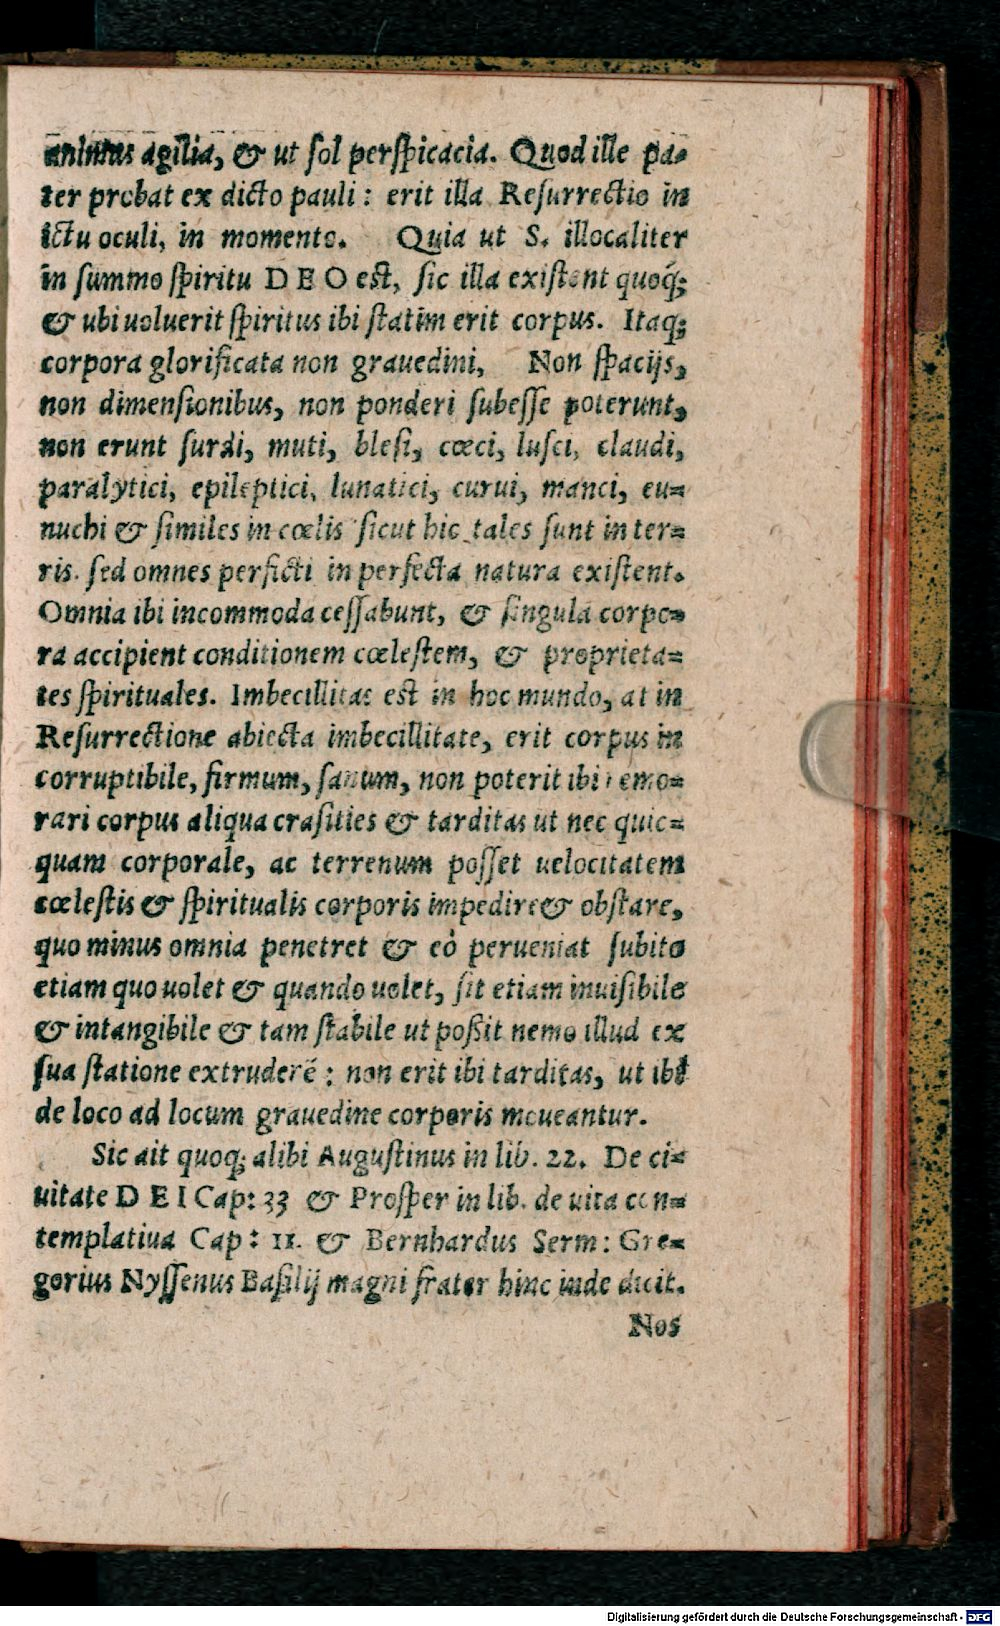 animus agilia, & ut ſol perſpicacia. Quod ille pa-
ter probat ex dicto pauli: erit illa Reſurrectio in
ictu oculi, in momento. Quia ut S. illocaliter
in ſummo ſpiritu DEO eſt, ſic illa exiſtent quoq́;
& ubi uoluerit ſpiritus ibi ſtatim erit corpus. Itaq;
corpora glorificata non grauedini, Non ſpacijs,
non dimenſionibus, non ponderi ſubeſſe poterunt,
non erunt ſurdi, muti, bleſi, cœci, luſci, claudi,
paralytici, epileptici, lunatici, curui, manci, eu=
nuchi & ſimiles in cœlis ſicut hic tales ſunt in ter=
ris. ſed omnes perficti in perfecta natura exiſtent.
Omnia ibi incommoda ceſſabunt, & ſingula corpo-
ra accipient conditionem cœleſtem, & proprieta=
tes ſpirituales. Imbecillitas eſt in hoc mundo, at in
Reſurrectione abiecta imbecillitate, erit corpus in
corruptibile, firmum, ſanum, non poterit ibi remo-
rari corpus aliqua craſities & tarditas ut nec quic=
quam corporale, ac terrenum poſſet uelocitatem
cœleſtis & ſpiritualis corporis impedire & obſtare,
quo minus omnia penetret & eò perueniat ſubito
etiam quo uolet & quando uolet, ſit etiam inuiſibile
& intangibile & tam ſtabile ut poſsit nemo illud ex
ſua ſtatione extruderẽ: non erit ibi tarditas, ut ibi
de loco ad locum grauedine corporis moueantur.
Sic ait quoq; alibi Auguſtinus in lib. 22. De ci-
uitate DEI Cap: 33 & Proſper in lib. de uita con=
templatiua Cap: 11. & Bernhardus Serm: Gre-
gorius Nyſſenus Baſilij magni frater hinc inde dicit.
Nos
Digitalisierung gefördert durch die Deutsche Forschungsgemeinschaft - DFG